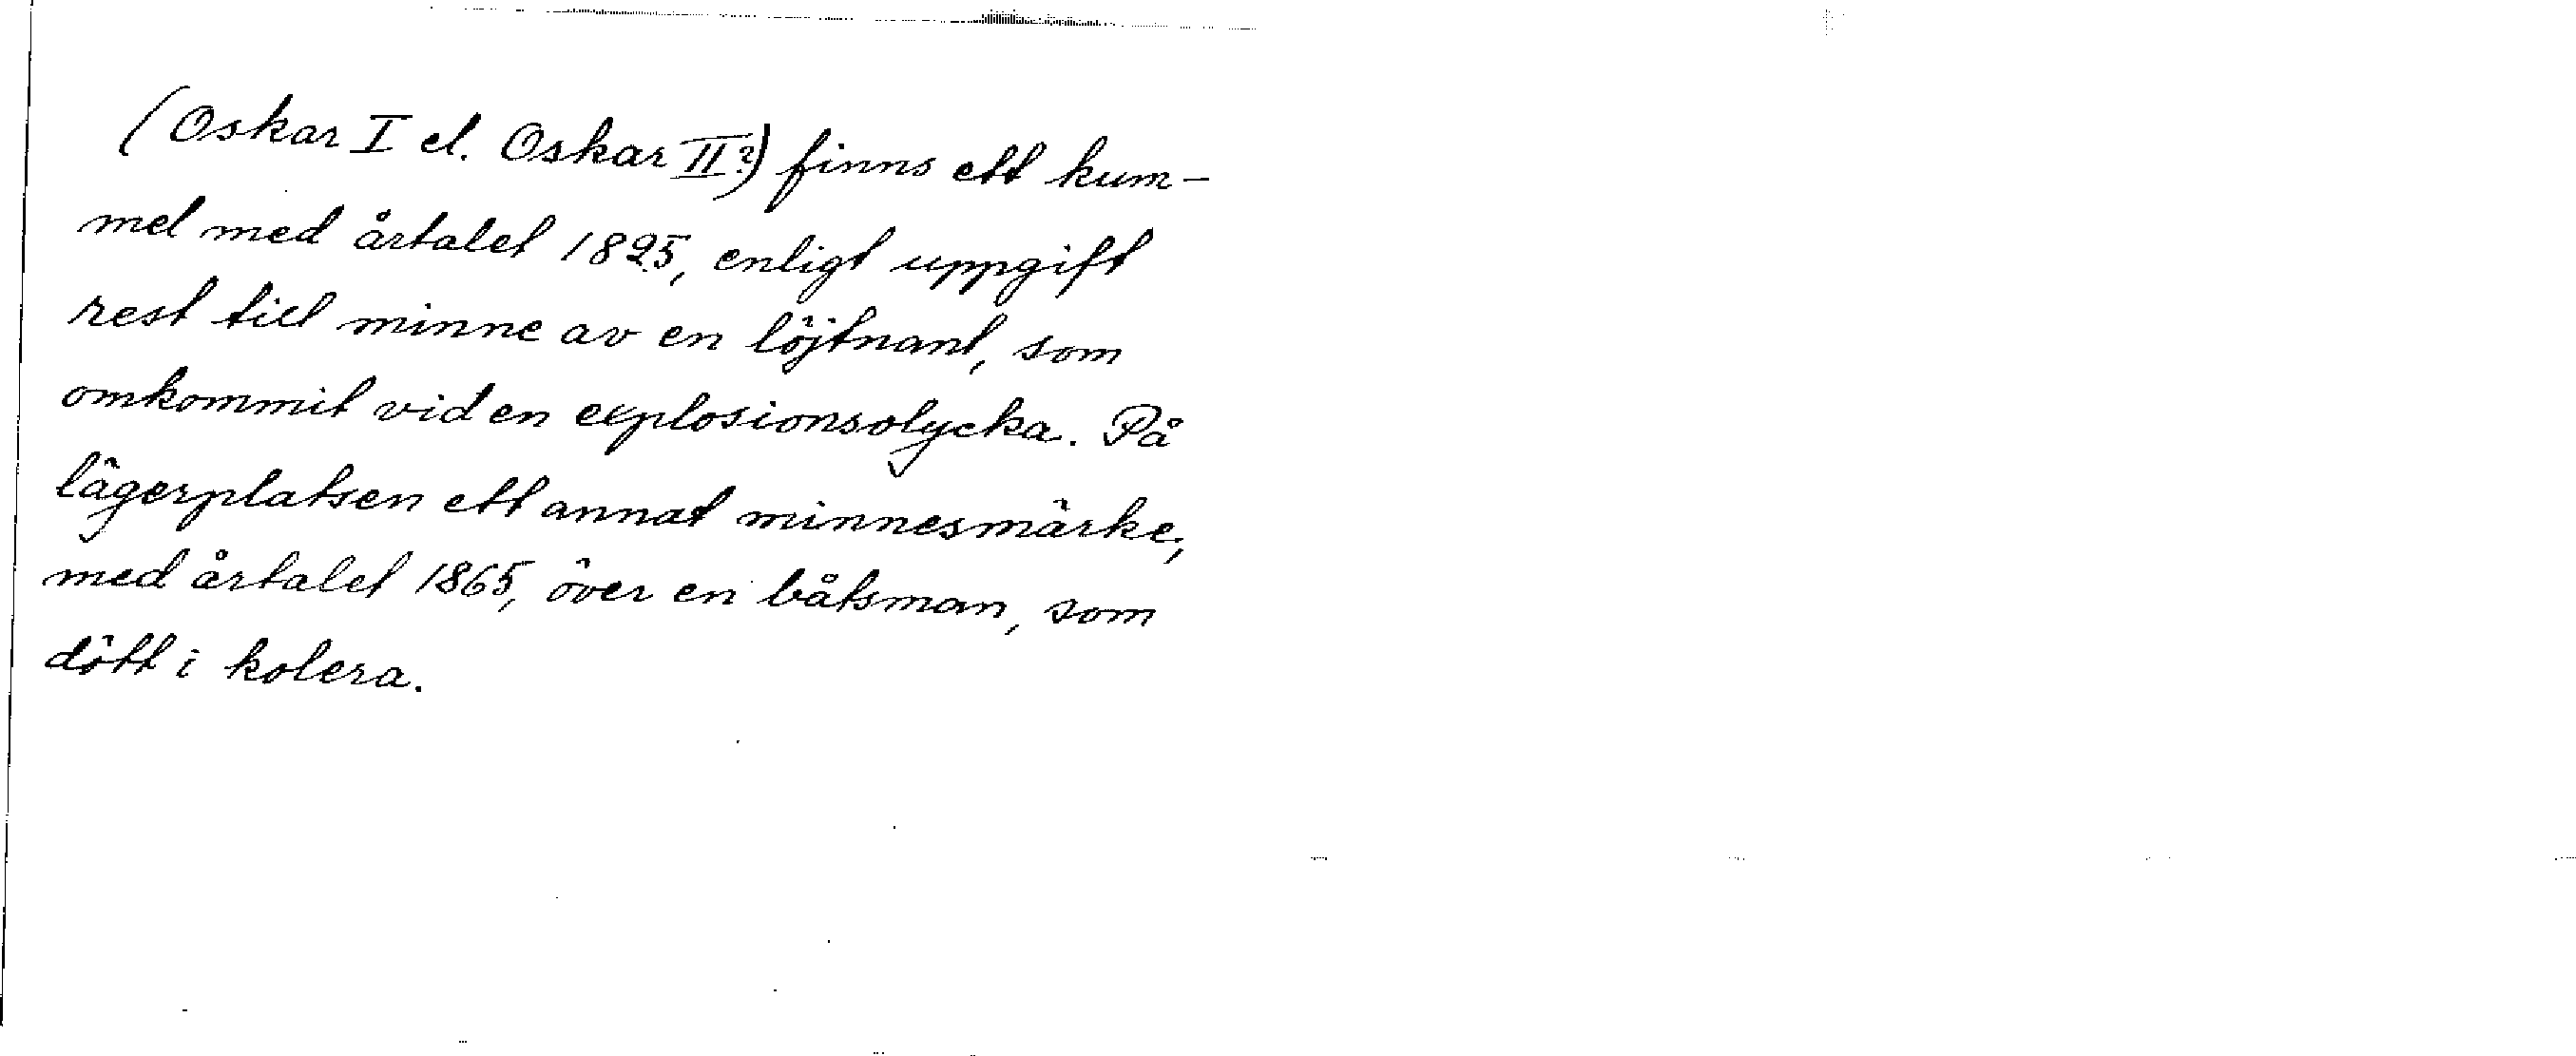 (Oskar I el. Oskar II?) finns ett kum-
mel med årtalet 1825, enligt uppgift
rest till minne av en löjtnant, som
omkommit vid en explosionsolycka. På
lägerplatsen ett annat minnesmärke,
med årtalet 1865, över en båtsman, som
dött i kolera.